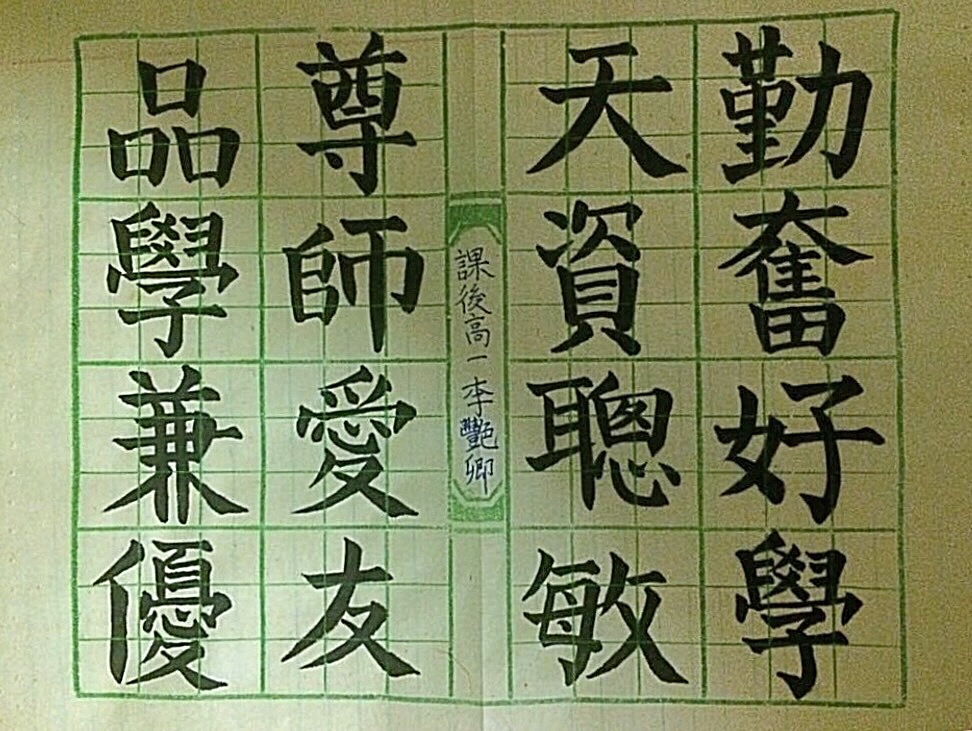 勤奮好學
天資聰敏
課後高一 李艷卿
尊師愛友
品學兼優